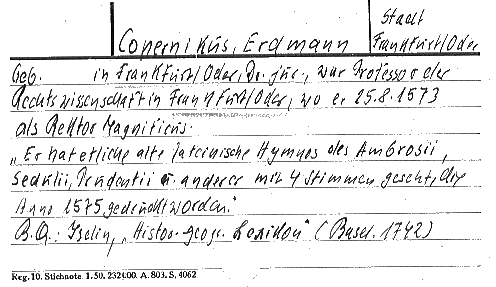 Copernikus, Erdmann
Stadt
Frankfurt/Oder
Geb. in Frankfurt/Oder, Dr. jur., war Professor der
Rechtswissenschaft in Frankfurt/Oder, wo er 25.8.1573
als Rektor Magnificus.
„Er hat etliche alte lateinische Hymnos des Ambrosii,
Sedulii, Prudentii u. anderer mit 4 Stimmen gesetzt, die
Anno 1575 gedruckt worden."
B.Q.: Iselin, „Histor.-geogr. Lexikon" (Basel. 1742)
Reg. 10. Stichnote. 1. 50. 232400. A. 803. S. 4062